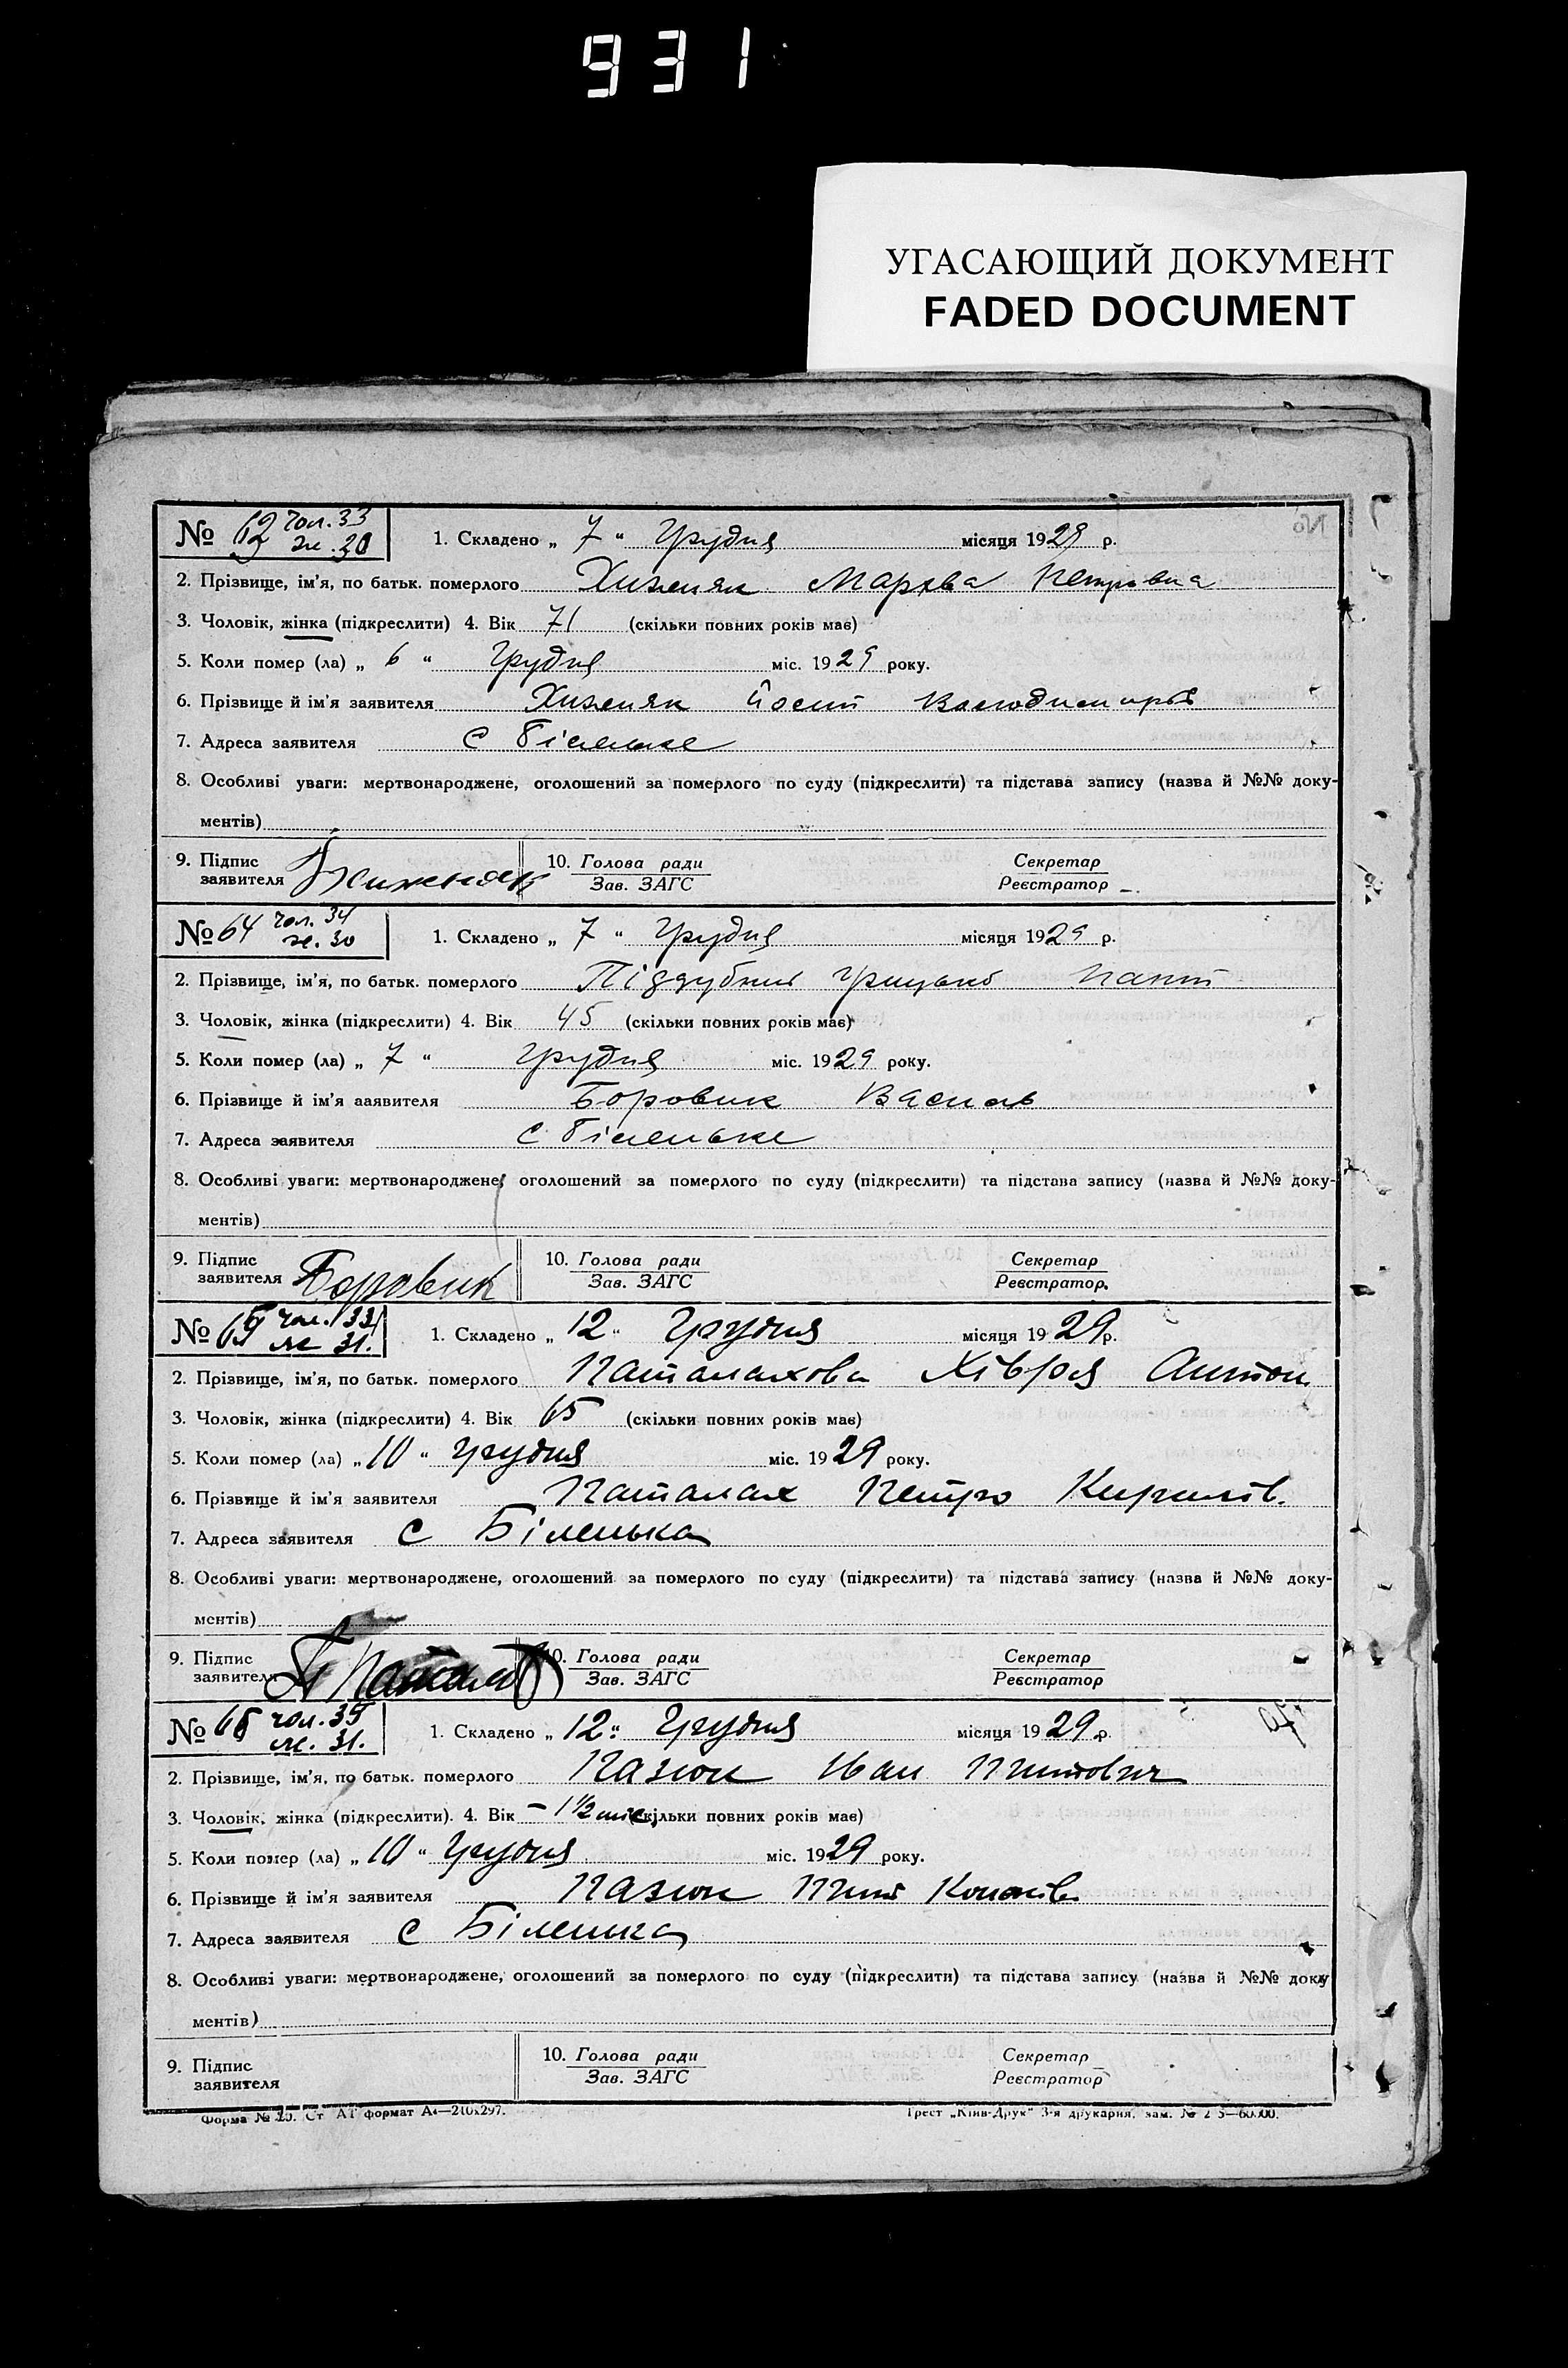 931
УГАСАЮЩИЙ ДОКУМЕНТ
FADED DOCUMENT
№ чол. 33
ж. 30
1. Складено „ 7 “ Грудня місяця 1929 р.
2. Прізвище, ім’я, по батьк. померлого Хижняк Марфа Петровна
3. Чоловік, жінка (підкреслити) 4. Вік 71 (скільки повних років має)
5. Коли помер (ла) „ 6 “ Грудня міс. 1929 року.
6. Прізвище й ім’я заявителя Хижняк Йосип
7. Адреса заявителя с Біленьке
8. Особливі уваги: мертвонароджене, оголошений за померлого по суду (підкреслити) та підстава запису (назва й №№ доку-
ментів)
9. Підпис заявителя Хижняк
10. Голова ради
Зав. ЗАГС
Секретар
Реєстратор
№ 64 чол. 34
ж. 30
1. Складено „ 7 “ Грудня місяця 1929 р.
2. Прізвище, ім’я, по батьк. померлого Піддубний Грицько
3. Чоловік, жінка (підкреслити) 4. Вік 45 (скільки повних років має)
5. Коли помер (ла) „ 7 “ Грудня міс. 1929 року.
6. Прізвище й ім’я ааявителя Боровик Василь
7. Адреса заявителя с Біленьке
8. Особливі уваги: мертвонароджене, оголошений за померлого по суду (підкреслити) та підстава запису (назва й №№ доку-
ментів)
9. Підпис заявителя Боровик
10. Голова ради
Зав. ЗАГС
Секретар
Реєстратор.
№ чол.
ж 31.
1. Складено „ 12 “ Грудня місяця 1929 р.
2. Прізвище, ім’я, по батьк. померлого Паталахова Хівря Антон
3. Чоловік, жінка (підкреслити) 4. Вік 65 (скільки повних років має)
5. Коли помер (ла) „ 10 “ Грудня міс. 1929 року.
6. Прізвище й ім’я заявителя Паталах Петро Кирилів.
7. Адреса заявителя с Біленька
8. Особливі уваги: мертвонароджене, оголошений за померлого по суду (підкреслити) та підстава запису (назва й №№ доку-
ментів)
9. Підпис заявителя
10. Голова ради
Зав. ЗАГС
Секретар
Реєстратор
№ чол. 35
ж. 31.
1. Складено „ 12 “ Грудня місяця 1929 р.
2. Прізвище, ім’я, по батьк. померлого Пазюк Іван
3. Чоловік, жінка (підкреслити). 4. Вік – 1 ½ міс. (скільки повних років має)
5. Коли помер (ла) „ 10 “ Грудня міс. 1929 року.
6. Прізвище й ім’я заявителя Пазюк
7. Адреса заявителя с Біленька
8. Особливі уваги: мертвонароджене, оголошений за померлого по суду (підкреслити) та підстава запису (назва й №№ доку
ментів)
9. Підпис заявителя
10. Голова ради
Зав. ЗАГС
Секретар
Реєстратор
Форма № Ст формат А4—210х297.
Трест „Київ-Друк“ 3-я друкарня, зам. №